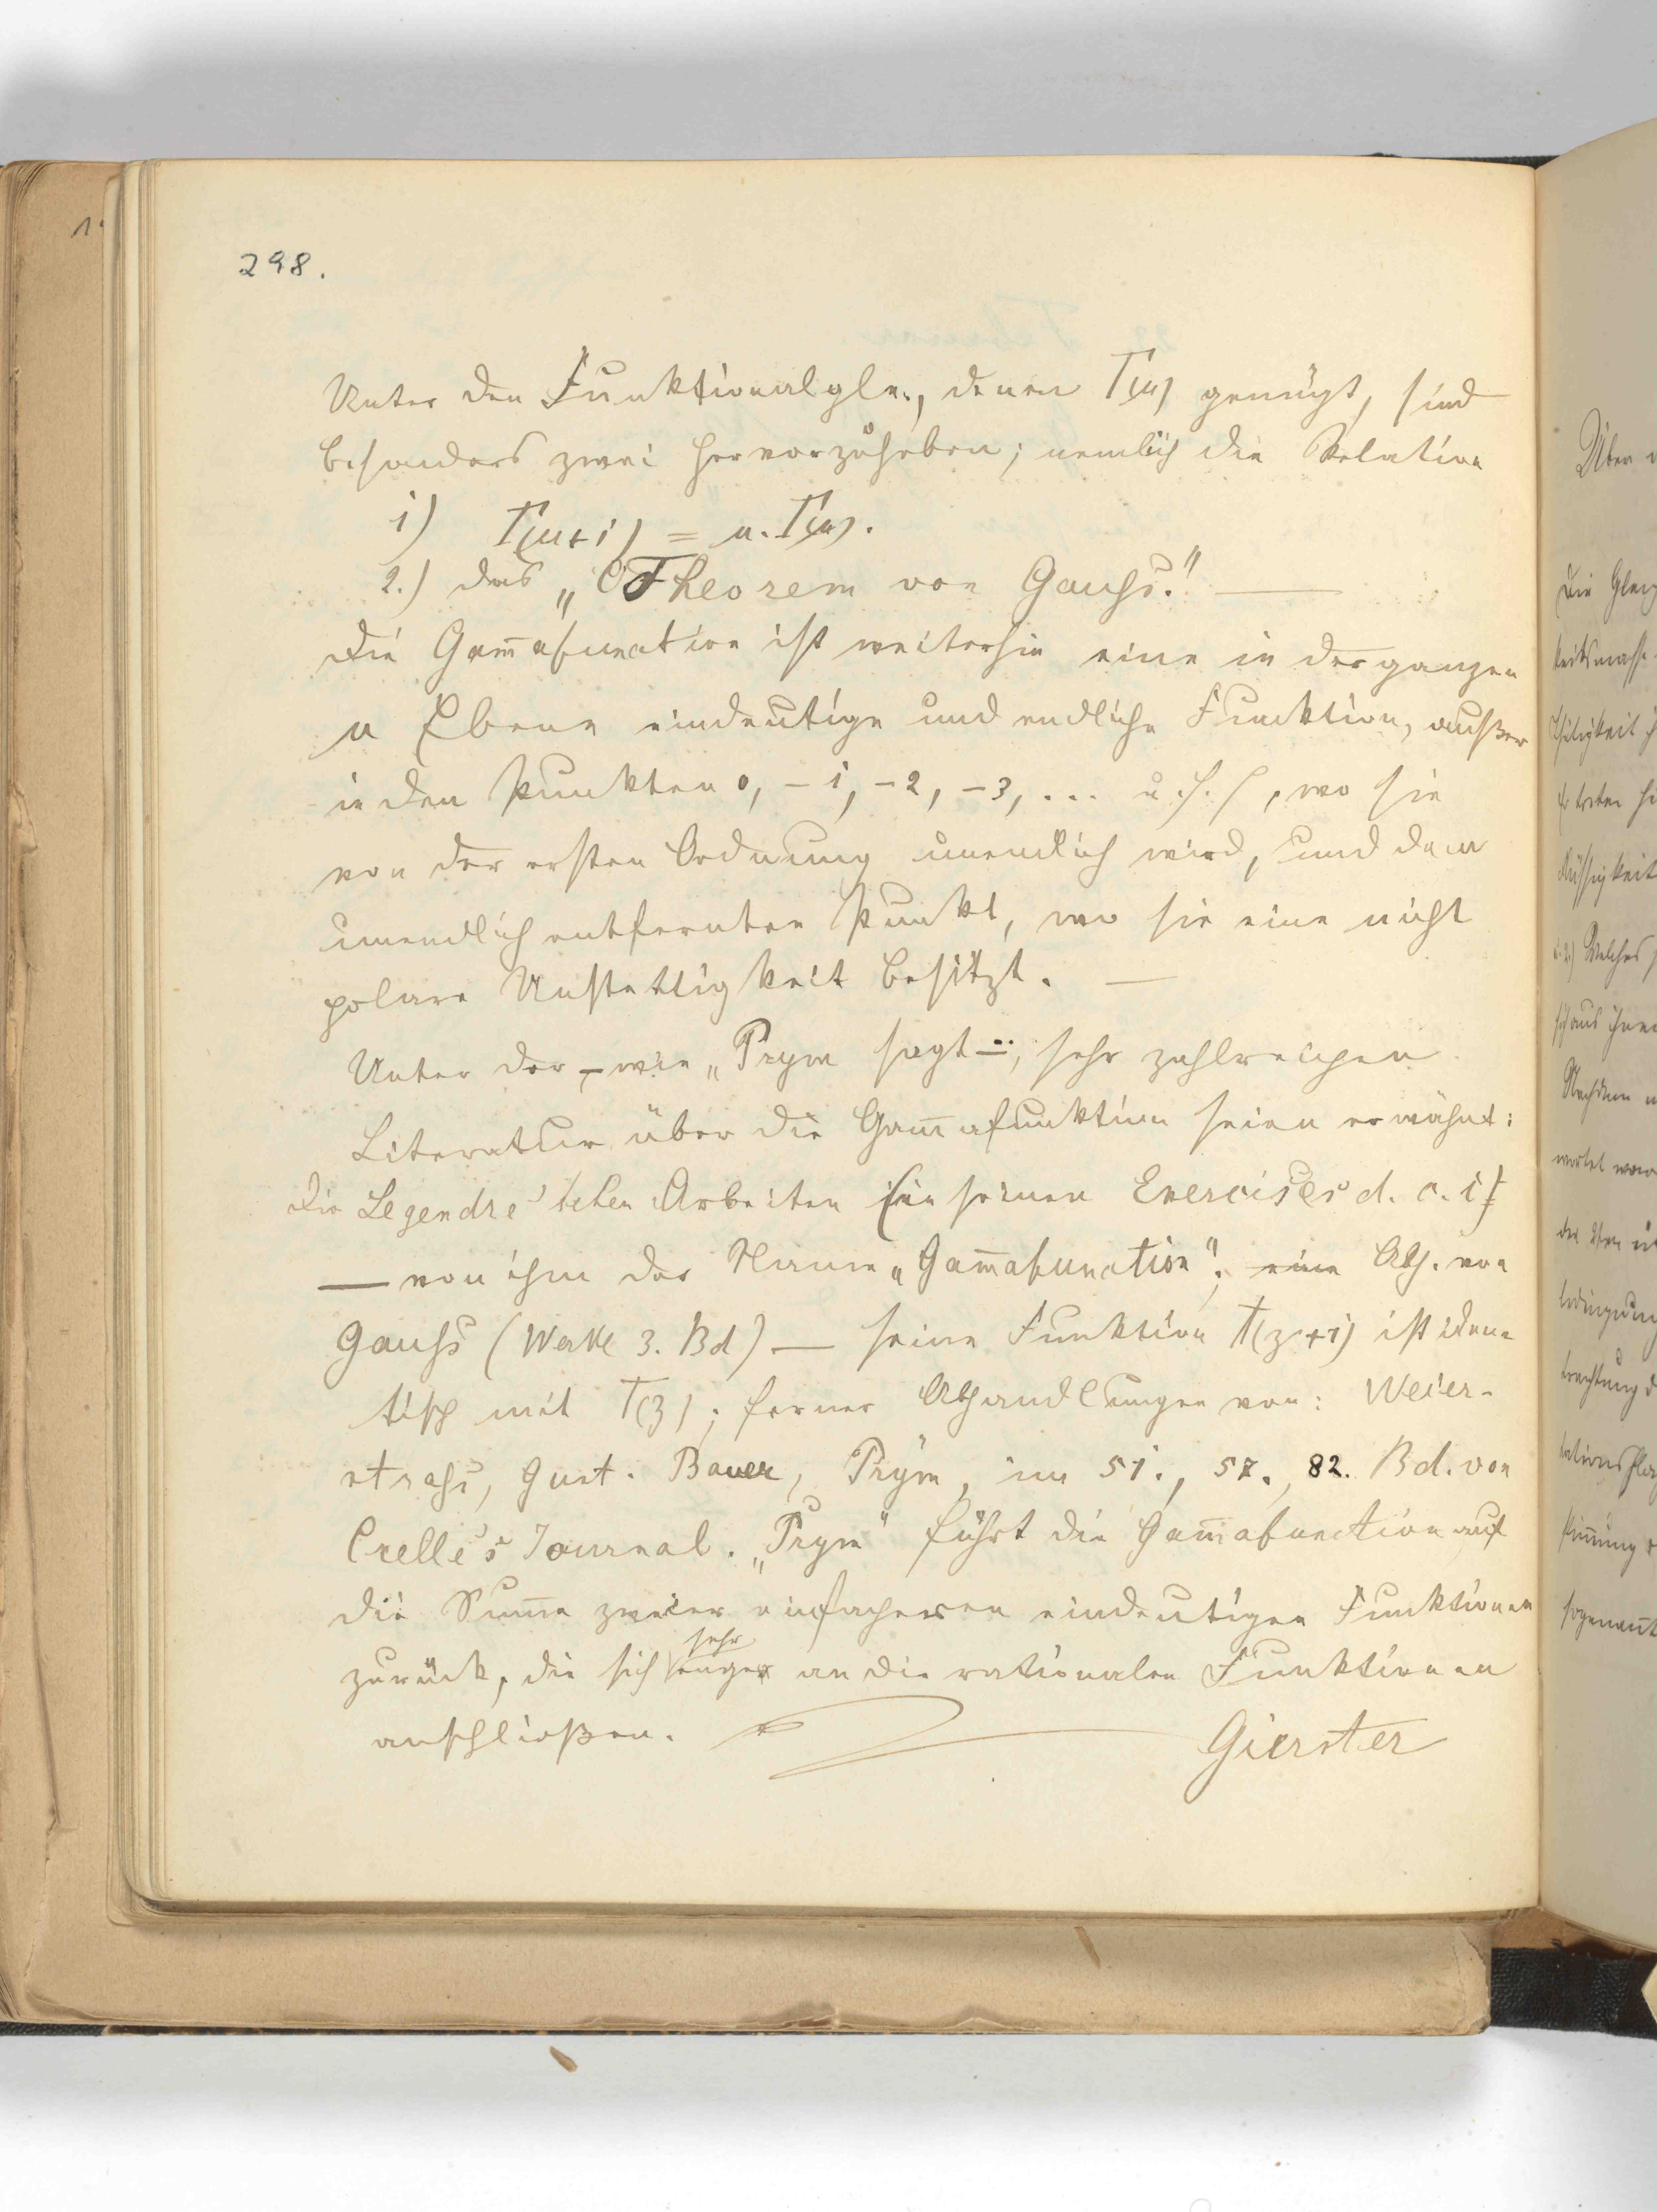 298.
Unter den Funktionalgln., denen Γ(u) genügt, sind
besonders zwei hervorzuheben; nemlich die Relation
1) Γ(u+1) = u. Γ(u).
2.) das „Theorem von Gauss."
Die Gam̅afunction ist weiterhin eine in der ganzen
u Ebene eindeutige und endliche Funktion, außer
in den Punkten 0, -1, -2, -3, ... u. s. f., wo sie
von der ersten Ordnung unendlich wird, und dem
unendlich entfernten Punkt, wo sie eine nicht
polare Unstettigkeit besitzt. —
Unter der – wie „Prym sagt –", sehr zahlreichen
Literatur über die Gam̅afunktion seien erwähnt:
die Legendre'schen Arbeiten (in seinen Exercises d. c. i)
— von ihm der Name „Gam̅afunction"; eine Abh. von
Gauss (Werke 3. Bd) — seine Funktion Π(z+1) ist iden-
tisch mit Γ(z); ferner Abhandlungen von: Weier-
strass, Gust. Bauer, Prym, im 51., 57., 82. Bd. von
Crelle's Journal. „Prym" führt die Gam̅afunction auf
die Sum̅e zweier einfacheren eindeutigen Funktionen
zurück, die sich sehr enge an die rationalen Funktionen
anschließen. Gierster